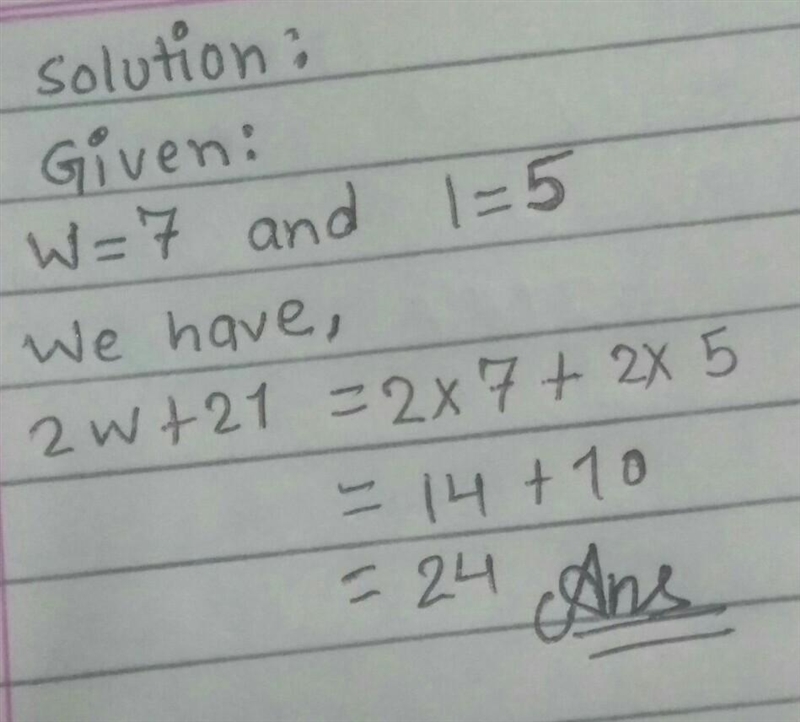 Solution:
Given:
W=7 and l=5
We have,
2W+2l =2x7+2x5
=14+10
=24 Ans